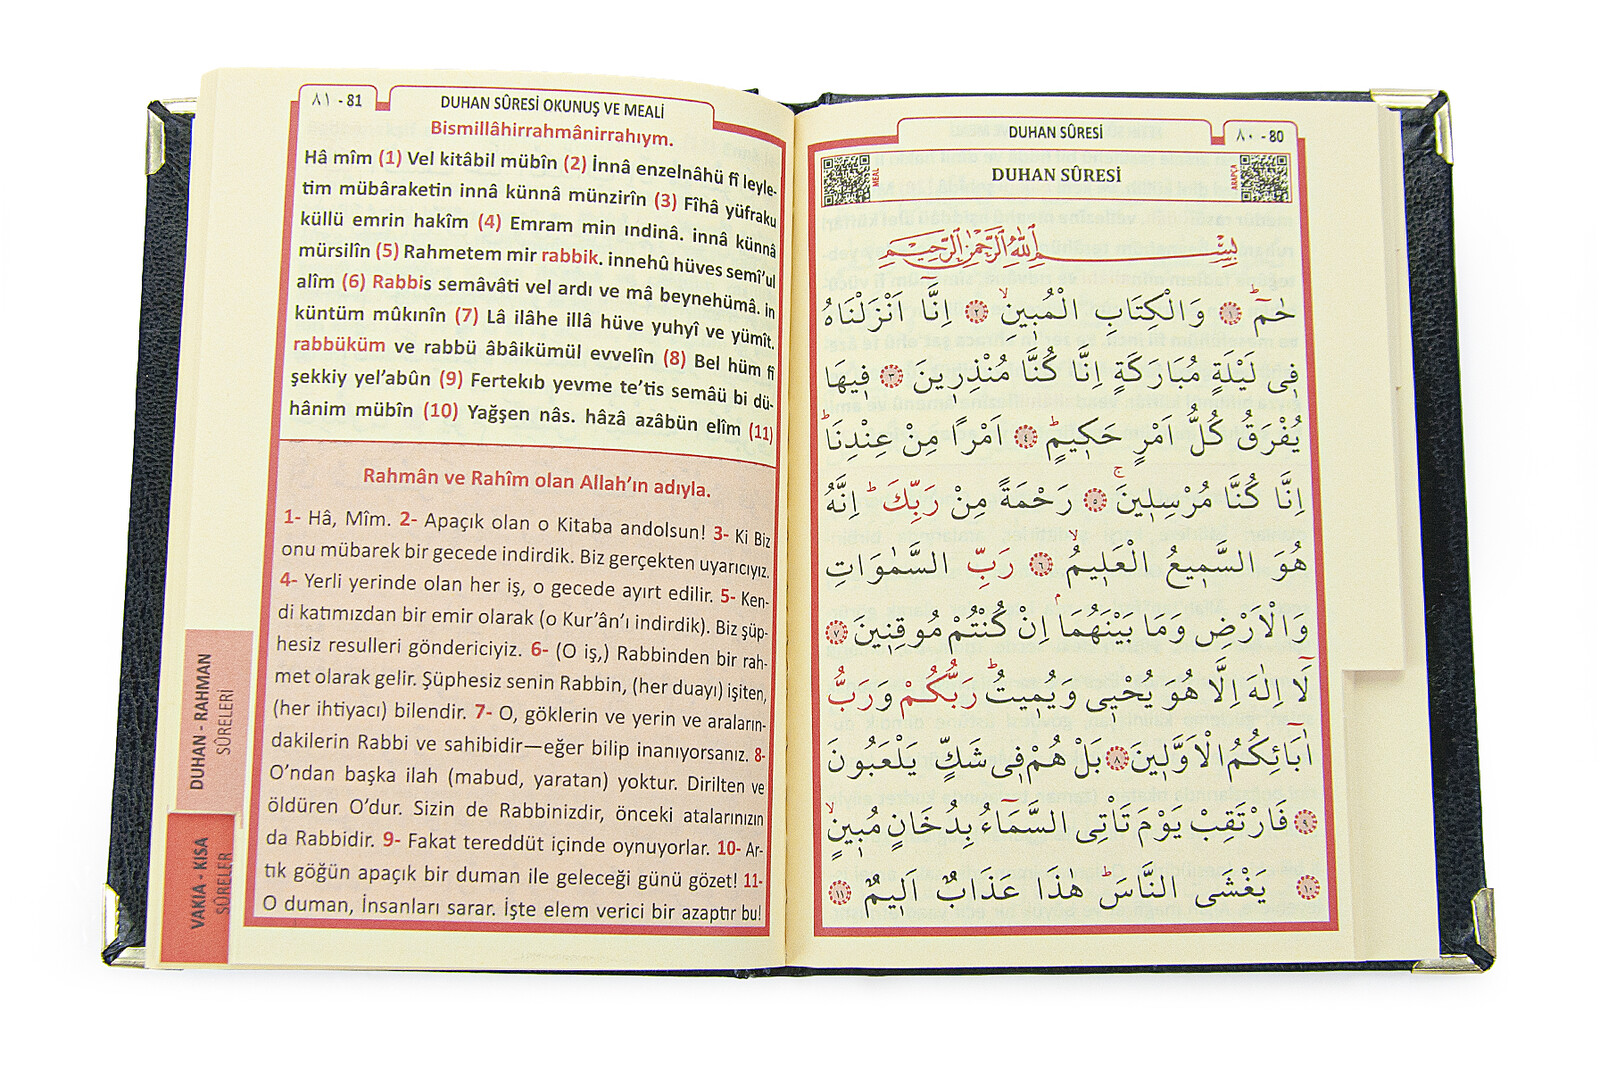 DUHAN SÛRESİ
٨٠ - 80
MEAL
DUHAN SÛRESİ
ARAPÇA
بِسْمِ اللّٰهِ الرَّحْمٰنِ الرَّحِيمِ
حٰمٓ ۚ ﴿١﴾ وَالْكِتَابِ الْمُبِينِ ۙ ﴿٢﴾ اِنَّٓا اَنْزَلْنَاهُ
فِي لَيْلَةٍ مُبَارَكَةٍ اِنَّا كُنَّا مُنْذِرِينَ ﴿٣﴾ فِيهَا
يُفْرَقُ كُلُّ اَمْرٍ حَكِيمٍ ۙ ﴿٤﴾ اَمْرًا مِنْ عِنْدِنَا ۜ
اِنَّا كُنَّا مُرْسِلِينَ ۚ ﴿٥﴾ رَحْمَةً مِنْ رَبِّكَ ۜ اِنَّهُ
هُوَ السَّمِيعُ الْعَلِيمُ ۙ ﴿٦﴾ رَبِّ السَّمٰوَاتِ
وَالْاَرْضِ وَمَا بَيْنَهُمَا ۢ اِنْ كُنْتُمْ مُوقِنِينَ ﴿٧﴾
لَٓا اِلٰهَ اِلَّا هُوَ يُحْيِي وَيُمِيتُ ۜ رَبُّكُمْ وَرَبُّ
اٰبَائِكُمُ الْاَوَّلِينَ ﴿٨﴾ بَلْ هُمْ فِي شَكٍّ يَلْعَبُونَ
﴿٩﴾ فَارْتَقِبْ يَوْمَ تَأْتِي السَّمَٓاءُ بِدُخَانٍ مُبِينٍ ۙ
﴿١٠﴾ يَغْشَى النَّاسَ ۜ هٰذَا عَذَابٌ اَلِيمٌ ﴿١١﴾
٨١ - 81
DUHAN SÛRESİ OKUNUŞ VE MEALİ
Bismillâhirrahmânirrahıym.
Hâ mîm (1) Vel kitâbil mübîn (2) İnnâ enzelnâhü fî leyle-
tim mübâraketin innâ künnâ münzirîn (3) Fîhâ yüfraku
küllü emrin hakîm (4) Emram min ındinâ. innâ künnâ
mürsilîn (5) Rahmetem mir rabbik. innehû hüves semî'ul
alîm (6) Rabbis semâvâti vel ardı ve mâ beynehümâ. in
küntüm mûkınîn (7) Lâ ilâhe illâ hüve yuhyî ve yümît.
rabbüküm ve rabbü âbâikümül evvelîn (8) Bel hüm fî
şekkiy yel'abûn (9) Fertekıb yevme te'tis semâü bi dü-
hânim mübîn (10) Yağşen nâs. hâzâ azâbün elîm (11)
Rahmân ve Rahîm olan Allah'ın adıyla.
1- Hâ, Mîm. 2- Apaçık olan o Kitaba andolsun! 3- Ki Biz
onu mübarek bir gecede indirdik. Biz gerçekten uyarıcıyız.
4- Yerli yerinde olan her iş, o gecede ayırt edilir. 5- Ken-
di katımızdan bir emir olarak (o Kur'ân'ı indirdik). Biz şüp-
hesiz resulleri göndericiyiz. 6- (O iş,) Rabbinden bir rah-
met olarak gelir. Şüphesiz senin Rabbin, (her duayı) işiten,
(her ihtiyacı) bilendir. 7- O, göklerin ve yerin ve araların-
dakilerin Rabbi ve sahibidir—eğer bilip inanıyorsanız. 8-
O'ndan başka ilah (mabud, yaratan) yoktur. Dirilten ve
öldüren O'dur. Sizin de Rabbinizdir, önceki atalarınızın
da Rabbidir. 9- Fakat tereddüt içinde oynuyorlar. 10- Ar-
tık göğün apaçık bir duman ile geleceği günü gözet! 11-
O duman, İnsanları sarar. İşte elem verici bir azaptır bu!
DUHAN - RAHMAN
SÛRELERİ
VAKIA - KISA
SÛRELER